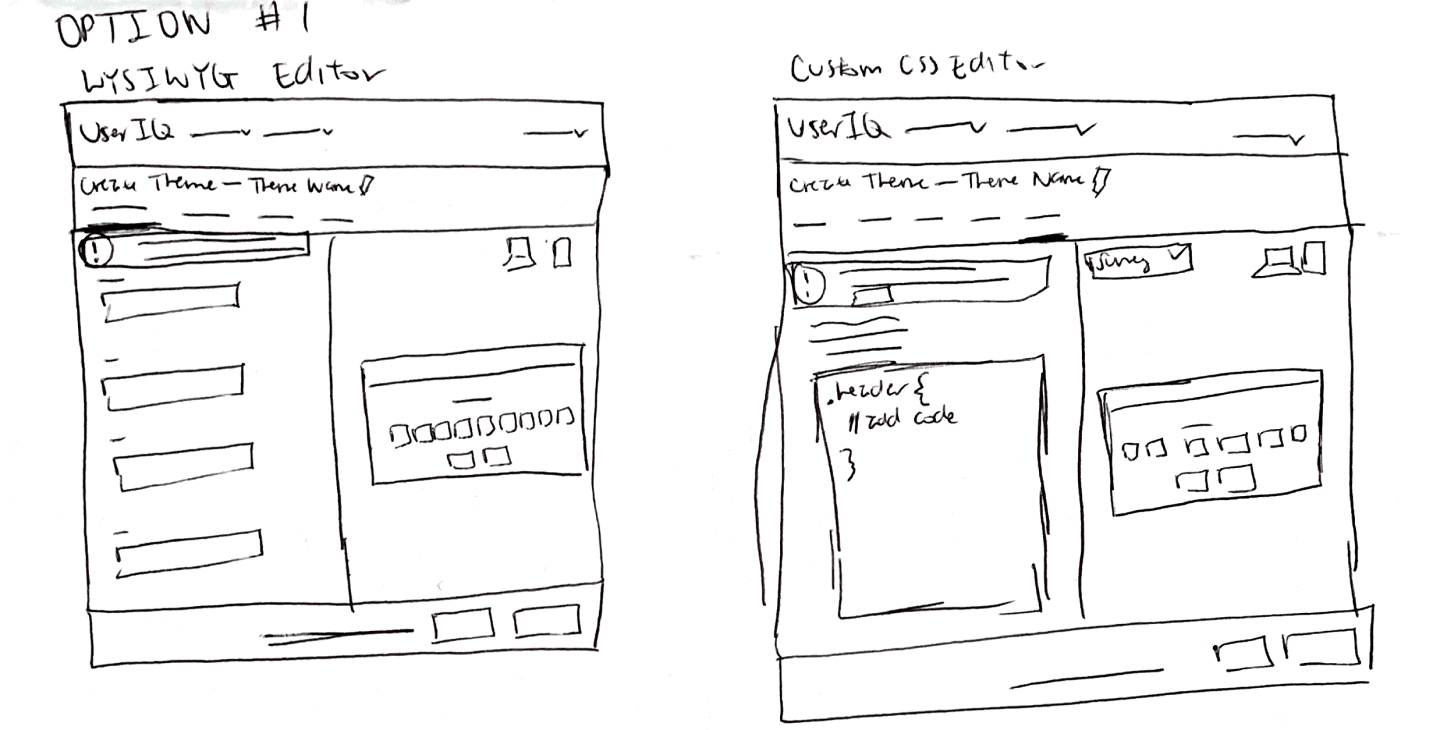 OPTION #1
WYSIWYG Editor
UserIQ
Create Theme — Theme Name
!
Custom CSS Editor
UserIQ
Create Theme — Theme Name
!
Survey
.header {
// add code
}